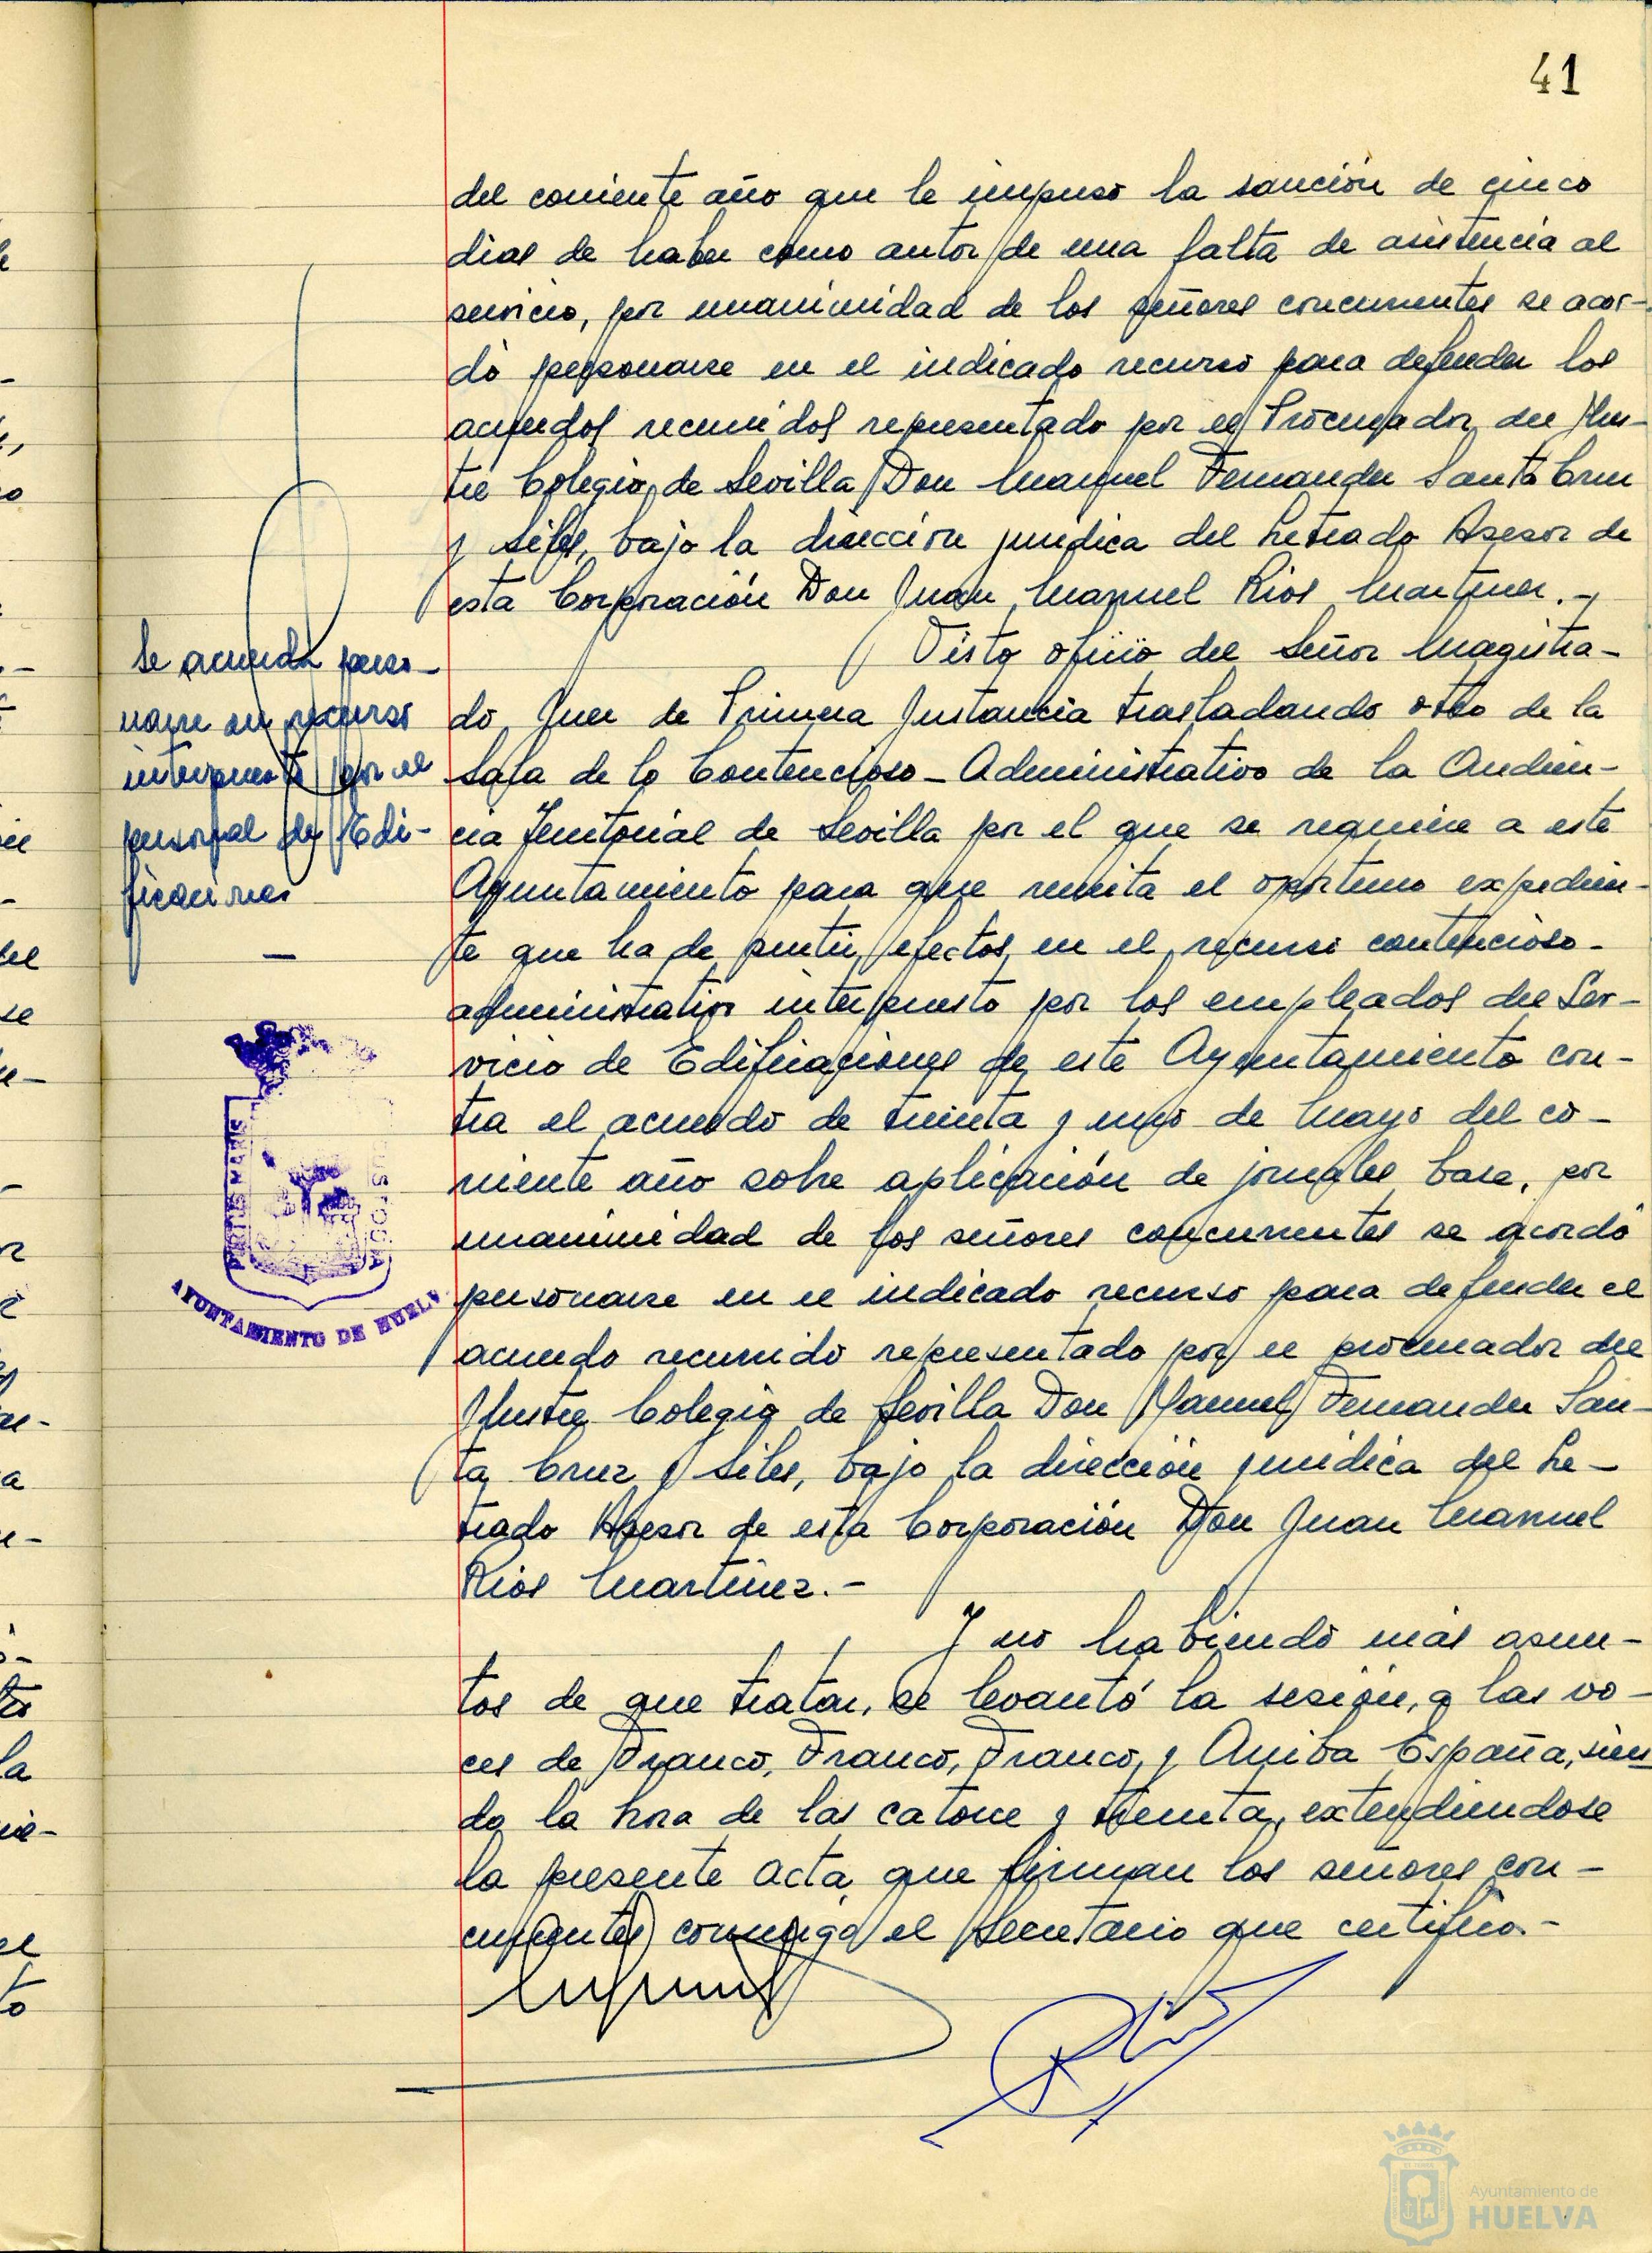 41
del corriente año que le impuso la sanción de cinco
dias de haber como autor de una falta de asistencia al
servicio, por unanimidad de los señores concurrentes se acor-
dó personarse en el indicado recurso para defender los
acuerdos recurridos representado por el Procurador del Ilus-
tre Colegio de Sevilla Don Manuel Fernandez Santa Cruz
y Siles, bajo la dirección juridica del Letrado Asesor de
esta Corporación Don Juan Manuel Rios Martinez.-
Visto oficio del Señor Magistra-
do Juez de Primera Instancia trasladando otro de la
Sala de lo Contencioso-Administrativo de la Audien-
cia Territorial de Sevilla por el que se requiere a este
Ayuntamiento para que remita el oportuno expedien-
te que ha de surtir efectos en el recurso contencioso-
administrativo interpuesto por los empleados del Ser-
vicio de Edificaciones de este Ayuntamiento con-
tra el acuerdo de treinta y uno de Mayo del co-
rriente año sobre aplicación de jornales base, por
unanimidad de los señores concurrentes se acordó
personarse en el indicado recurso para defender el
acuerdo recurrido representado por el procurador del
Ilustre Colegio de Sevilla Don Manuel Fernandez San-
ta Cruz y Siles, bajo la dirección juridica del Le-
trado Asesor de esta Corporación Don Juan Manuel
Rios Martinez.-
Y no habiendo más asun-
tos de que tratar, se levantó la sesión, a las vo-
ces de Franco, Franco, Franco, y Arriba España, sien
do la hora de las catorce y treinta, extendiendose
la presente acta, que firman los señores con-
currentes conmigo el Secretario que certifico.-
Se acuerda perso-
narse en recurso
interpuesto por el
personal de Edi-
ficaciones
PORTUS MARIS
AYUNTAMIENTO DE HUELV
Ayuntamiento de
HUELVA